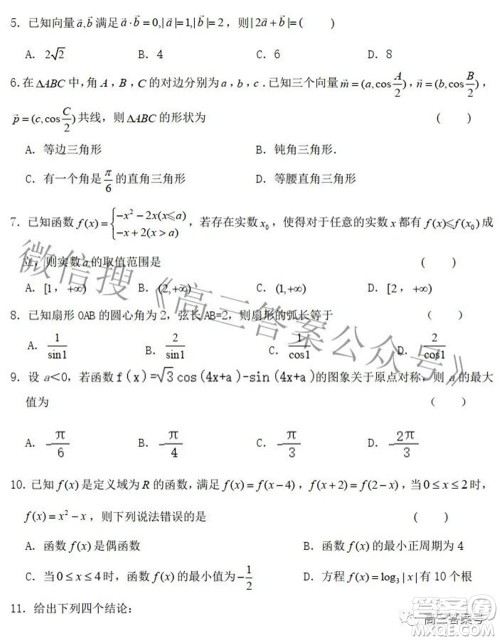 5．已知向量a⃗,b⃗满足a⃗·b⃗=0,|a⃗|=1,|b⃗|=2，则|2a⃗+b⃗|=（　）
A．2√2　B．4　C．6　D．8
6.在ΔABC中，角A，B，C的对边分别为a，b，c．已知三个向量m⃗=(a,cos A/2)，n⃗=(b,cos B/2)，
p⃗=(c,cos C/2)共线，则ΔABC的形状为（　）
A．等边三角形　B．钝角三角形．
C．有一个角是π/6的直角三角形　D．等腰直角三角形
7．已知函数f(x)={-x²-2x(x⩽a) -x+2(x>a)，若存在实数x₀，使得对于任意的实数x都有f(x)⩽f(x₀)成
立，则实数a的取值范围是（　）
A．[1，+∞)　B．(2,+∞)　C．(1,+∞)　D．[2，+∞)
8．已知扇形OAB的圆心角为2，弦长AB=2，则扇形的弧长等于（　）
A．1/sin1　B．2/sin1　C．1/cos1　D．2/cos1
9．设a<0，若函数f(x)=√3cos(4x+a)-sin(4x+a)的图象关于原点对称，则a的最大
值为（　）
A．-π/6　B．-π/4　C．-π/3　D．-2π/3
10．已知f(x)是定义域为R的函数，满足f(x)=f(x-4)，f(x+2)=f(2-x)，当0≤x≤2时，
f(x)=x²-x，则下列说法错误的是（　）
A．函数f(x)是偶函数　B．函数f(x)的最小正周期为4
C．当0≤x≤4时，函数f(x)的最小值为-1/2　D．方程f(x)=log₃|x|有10个根
11．给出下列四个结论：
微信搜《高三答案公众号》
高三答案号
答案圈
MXQE.COM